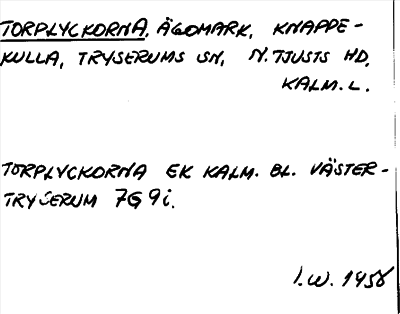 TORPLYCKORNA, ÄGOMARK, KNAPPE-
KULLA, TRYSERUMS SN, N. TJUSTS HD,
KALM. L.
TORPLYCKORNA EK KALM. BL. VÄSTER-
TRYSERUM 7G 9i.
I.W. 1958